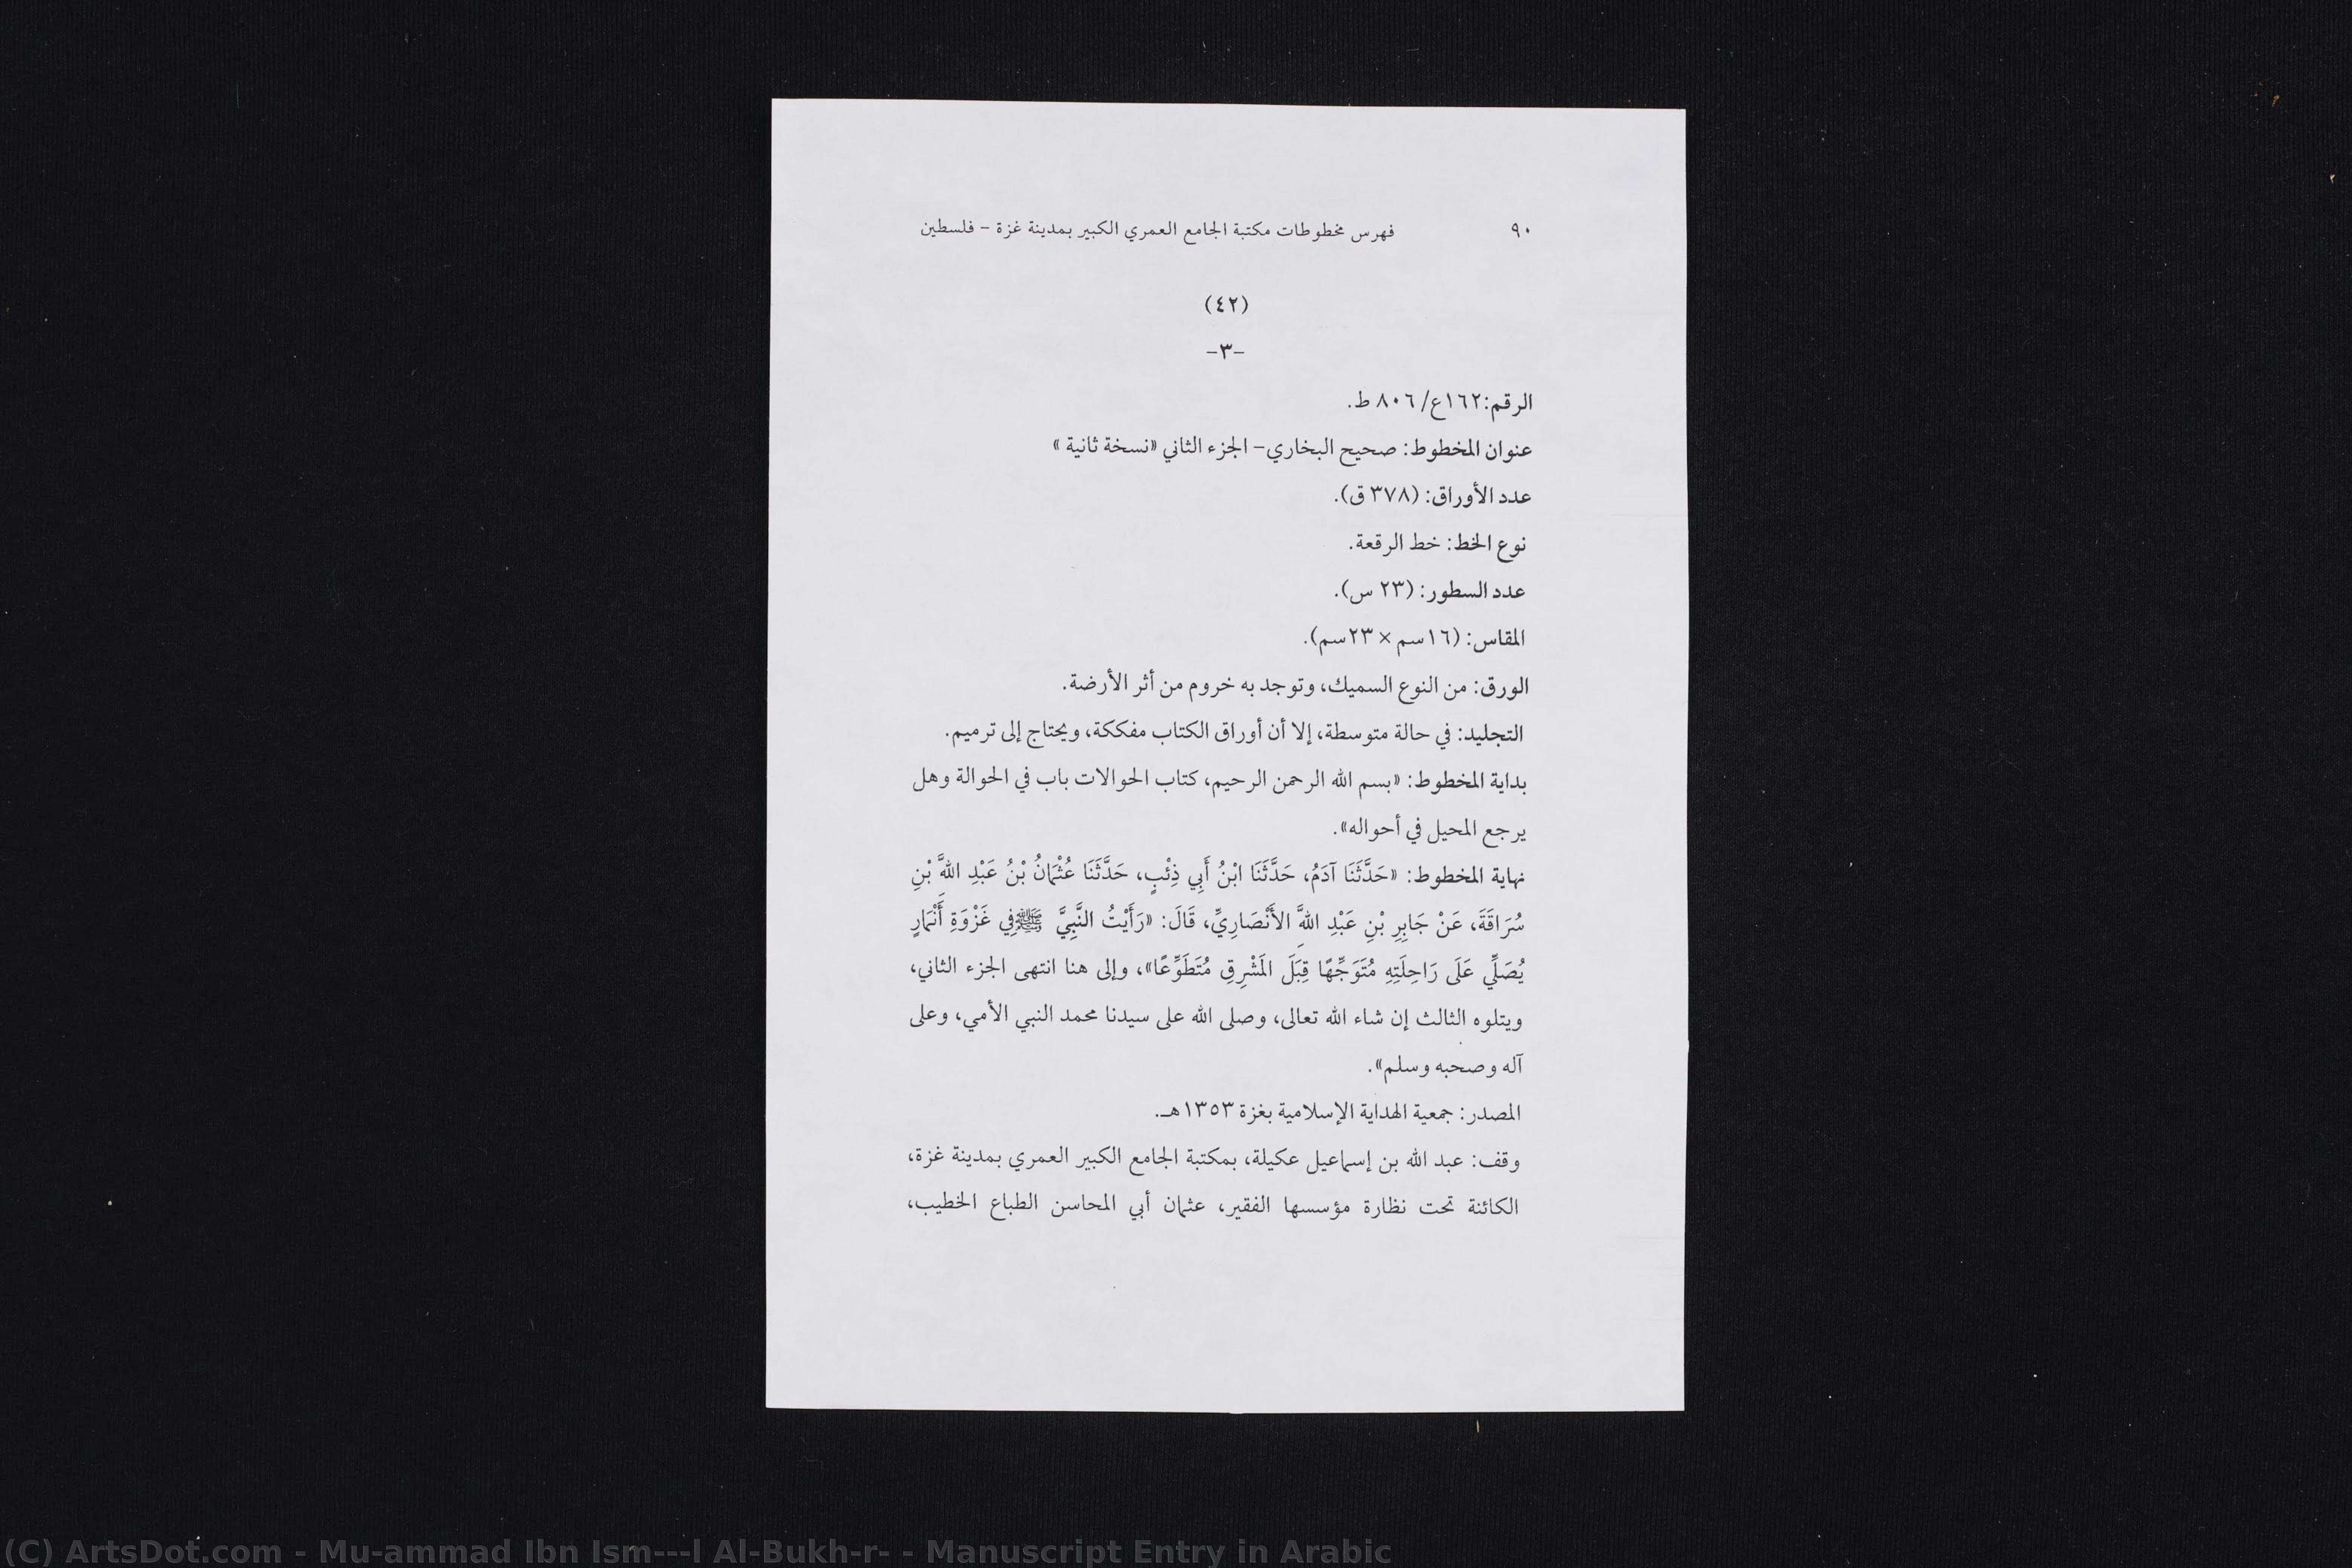 ٩٠ فهرس مخطوطات مكتبة الجامع العمري الكبير بمدينة غزة - فلسطين
(٤٢)
-٣-
الرقم:١٦٢ع/ ٨٠٦ ط.
عنوان المخطوط: صحيح البخاري- الجزء الثاني «نسخة ثانية »
عدد الأوراق: (٣٧٨ ق).
نوع الخط: خط الرقعة.
عدد السطور: (٢٣ س).
المقاس: (١٦سم × ٢٣سم).
الورق: من النوع السميك، وتوجد به خروم من أثر الأرضة.
التجليد: في حالة متوسطة، إلا أن أوراق الكتاب مفككة، ويحتاج إلى ترميم.
بداية المخطوط: «بسم الله الرحمن الرحيم، كتاب الحوالات باب في الحوالة وهل
يرجع المحيل في أحواله».
نهاية المخطوط: «حَدَّثَنَا آدَمُ، حَدَّثَنَا ابْنُ أَبِي ذِئْبٍ، حَدَّثَنَا عُثْمَانُ بْنُ عَبْدِ اللهَِّ بْنِ
سُرَاقَةَ، عَنْ جَابِرِ بْنِ عَبْدِ اللهَِّ الأَنْصَارِيِّ، قَالَ: «رَأَيْتُ النَّبِيَّ ﷺفِي غَزْوَةِ أَنْمَارٍ
يُصَلِّي عَلَى رَاحِلَتِهِ مُتَوَجِّهًا قِبَلَ المَشْرِقِ مُتَطَوِّعًا»، وإلى هنا انتهى الجزء الثاني،
ويتلوه الثالث إن شاء الله تعالى، وصلى الله على سيدنا محمد النبي الأمي، وعلى
آله وصحبه وسلم».
المصدر: جمعية الهداية الإسلامية بغزة ١٣٥٣هـ.
وقف: عبد الله بن إسماعيل عكيلة، بمكتبة الجامع الكبير العمري بمدينة غزة،
الكائنة تحت نظارة مؤسسها الفقير، عثمان أبي المحاسن الطباع الخطيب،
(C) ArtsDot.com - Mu-ammad Ibn Ism---l Al-Bukh-r- - Manuscript Entry in Arabic